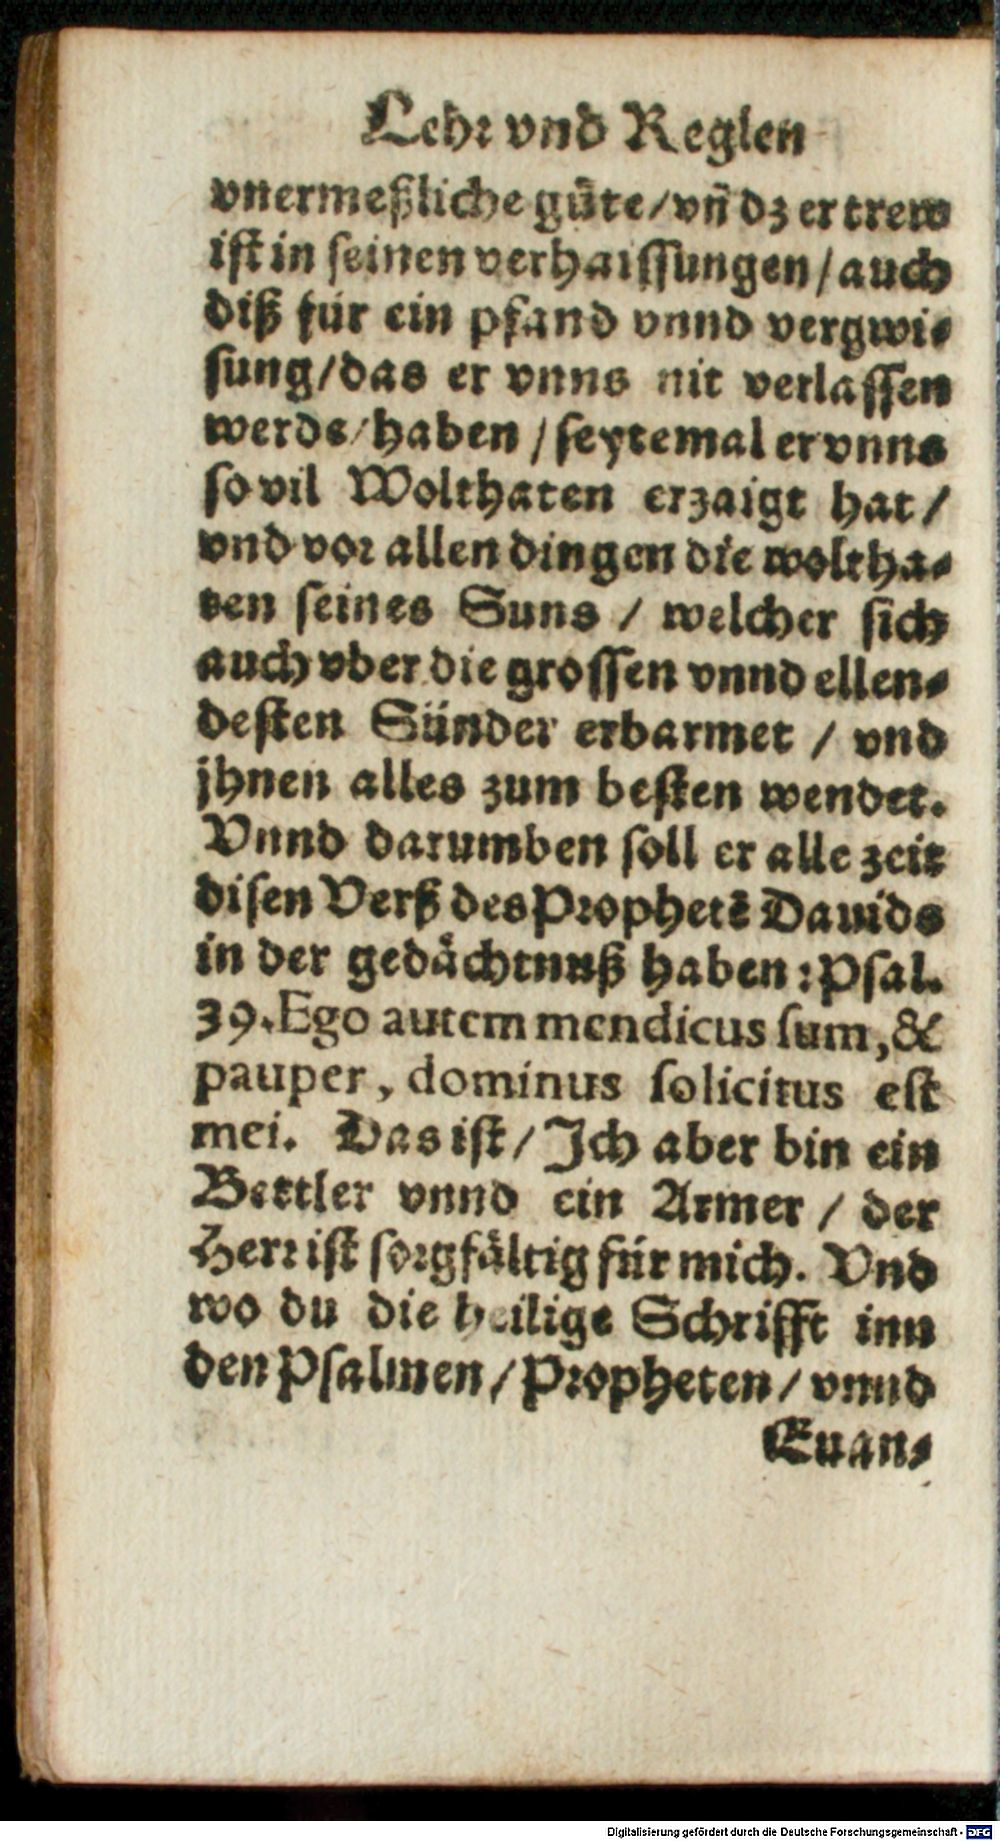 Lehr vnd Reglen
vnermeßliche güte/vn̄ dz er trew
ist in seinen verhaissungen/auch
diß für ein pfand vnnd vergwi⸗
sung/das er vnns nit verlassen
werde/haben/seytemal er vnns
so vil Wolthaten erzaigt hat/
vnd vor allen dingen die woltha⸗
ten seines Suns / welcher sich
auch vber die grossen vnnd ellen⸗
desten Sünder erbarmet / vnd
jhnen alles zum besten wendet.
Vnnd darumben soll er alle zeit
disen Verß des Prophetē Dauids
in der gedächtnuß haben: Psal.
39. Ego autem mendicus sum, &
pauper, dominus solicitus est
mei. Das ist/ Ich aber bin ein
Bettler vnnd ein Armer / der
Herr ist sorgfältig für mich. Vnd
wo du die heilige Schrifft inn
den Psalmen/Propheten/vnnd
Euan⸗
Digitalisierung gefördert durch die Deutsche Forschungsgemeinschaft - DFG